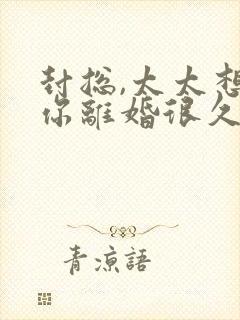 封总,太太想
你離婚很久
青凉語